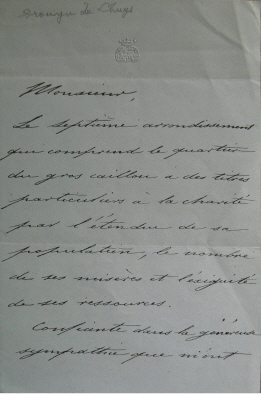 Drouyn de Lhuys
Monsieur,
Le septième arrondissement
qui comprend le quartier
du gros caillou a des titres
particuliers à la charité
par l'étendue de sa
population, le nombre
de ses misères et l'exiguité
de ses ressources.
Confiante dans la généreuse
sympathie que m'ont